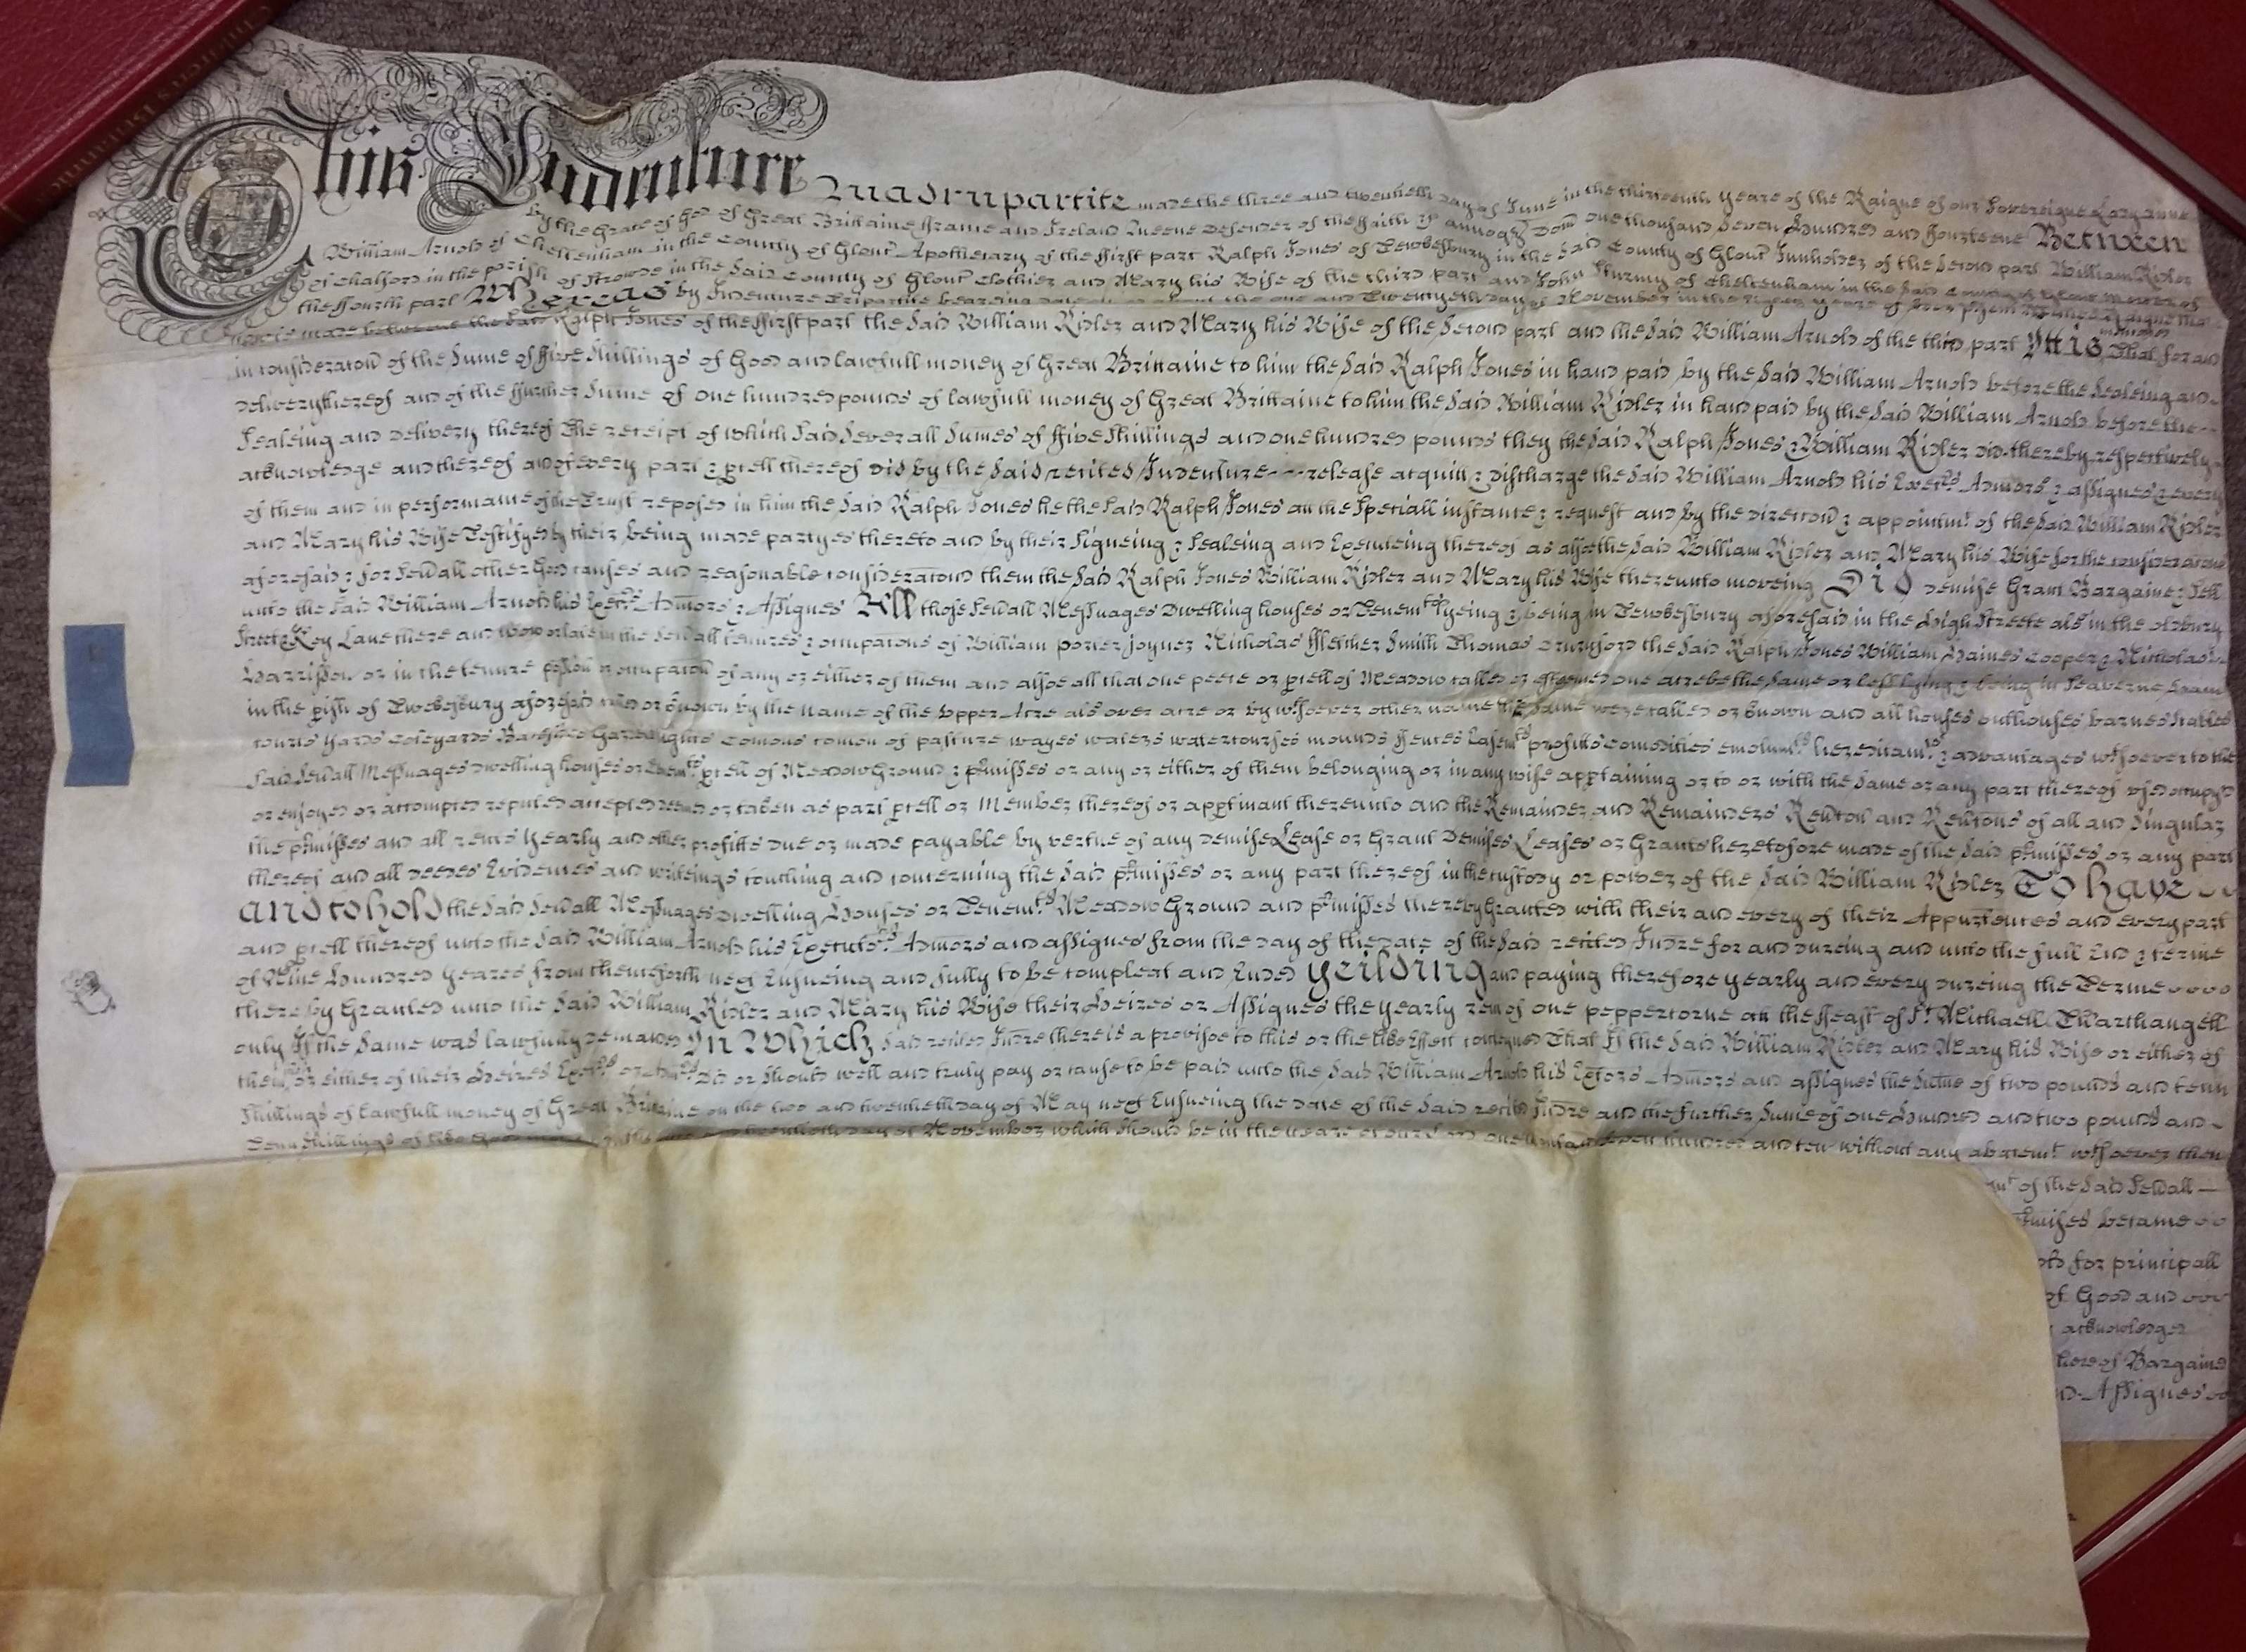 This Indenture Quadrupartite made the three and twentieth day of June in the thirteenth yeare of the Raigne of our Sovereigne Lady Anne
by the Grace of God of Great Brittaine ffrance and Ireland Queene Defender of the ffaith &c annoqz Dom one thousand Seven Hundred and ffourteene Between
William Arnold of Cheltenham in the County of Glouc Apothecary of the ffirst part Ralph Jones of Tewkesbury in the said County of Glouc Innholder of the Second part William Ridler
of Chalford in the parish of Strowde in the said County of Glouc Clothier and Mary his Wife of the third part and John Sturmy of Cheltenham in the said County of Glouc Mercer of
the ffourth part Whereas by Indenture Tripartite bearing date the one and Twentyeth day of November in the Eighth yeare of her
made betweene the said Ralph Jones of the ffirst part the said William Ridler and Mary his Wife of the second part and the said William Arnold of the third part Ittis That for and
in consideracon of the sume of ffive shillings of Good and lawfull money of Great Brittaine to him the said Ralph Jones in hand paid by the said William Arnold before the sealeing and
delivery thereof and of the ffurther sume of one hundred pounds of lawfull money of Great Brittaine to him the said William Ridler in hand paid by the said William Arnold before the
Sealeing and delivery thereof the receipt of which said severall sumes of ffive shillings and one hundred pounds they the said Ralph Jones & William Ridler did thereby respectively
acknowledge and thereof and of every part & pcell thereof did by the said recited Indenture release acquitt & discharge the said William Arnold his Exectrs Admors & assignes & every
of them and in performance of the Trust reposed in him the said Ralph Jones he the said Ralph Jones att the speciall instance & request and by the direccon & appointmt of the said William Ridler
and Mary his Wife Testifyed by their being made partyes thereto and by their signeing & sealeing and Executeing thereof as alsoe the said William Ridler and Mary his Wife for the consideracon
aforesaid & for sevrall other good causes and reasonable consideracons them the said Ralph Jones William Ridler and Mary his Wife thereunto moveing Did demise Grant Bargaine & sell
unto the said William Arnold his Exectrs Admors & Assignes All those sevrall Messuages dwelling houses or Tenemts lyeing & being in Tewkesbury aforesaid in the High Streete als in the oldbury
Street & Key Lane there and now or late in the sevrall tenures & occupacons of William Porter joyner Nicholas Smith Thomas the said Ralph Jones William Haines Cooper & Nicholas
Harrisson or in the tenure possion or occupacon of any or either of them and alsoe all that one peece or pcell of Meadow called or esteemed one acre be the same or less lying & being in Severne Ham
in the pish of Tewkesbury aforesaid called or knowne by the name of the Upper Acre als over acre or by wtsoever other name the same were called or knowne and all houses outhouses barnes stables
courts yards Backsides Gardens lights Comons comon of pasture wayes waters watercourses mounds ffences Easemts profitts comodities emolumts hereditamts & advantages wtsoever to the
said sevrall Messuages dwelling houses or Tenemts pcell of Meadow Ground & pmisses or any or either of them belonging or in any wise apptaining or to or with the same or any part thereof used occupyd
or enjoyed or accepted reputed or taken as part pcell or Member thereof or apptinant thereunto and the Remainder and Remainders Revrcon and Revrcons of all and singular
the pmisses and all rents yearly and other profitts due or made payable by vertue of any demise Lease or Grant Demises Leases or Grants heretofore made of the said pmisses or any part
thereof and all deedes Evidences and writeings touching and concerning the said pmisses or any part thereof in the custody or power of the said William Ridler To have
and to hold the said sevrall Messuages dwelling Houses or Tenemts Meadow Ground and pmisses thereby Granted with their and every of their Appurtences and every part
and pcell thereof unto the said William Arnold his Executrs Admors and assignes from the day of the date of the said recited Indre for and dureing and unto the full End & terme
of Nine Hundred yeares from thenceforth next Ensueing and fully to be compleat and Ended yeilding and paying therefore yearly and every dureing the Terme
thereby Granted unto the said William Ridler and Mary his Wife their Heires or Assignes the yearly rent of one peppercorne att the ffeast of St Michaell Tharchangell
only if the same was lawfully demanded In Which said recited Indre there is a provisoe to this or the like Effect That if the said William Ridler and Mary his Wife or either of
them or either of their Heires Exectrs or Admrs did or should well and truly pay or cause to be paid unto the said William Arnold his Exctors Admors and assignes the sume of two pounds and tenn
shillings of lawfull money of Great Brittaine on the two and twentieth day of May next Ensueing the date of the said recited Indre and the further sume of one Hundred and two pounds and
Tenn shillings of like day of November which should be in the yeare of our Lord one seven hundred and ten without any abatemt wtsoever then
of the said sevrall
pmises became
for principall
of Good and
acknowledge
thereof Bargained
and Assignes